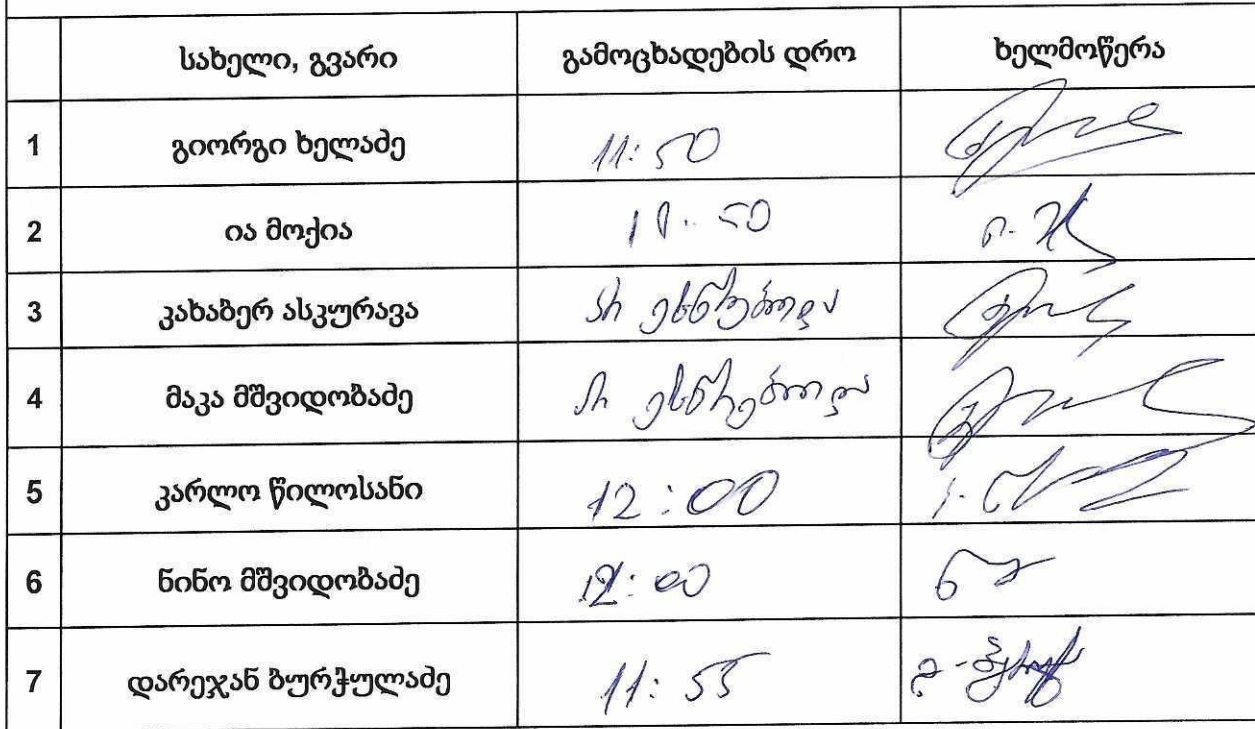 სახელი, გვარი გამოცხადების დრო ხელმოწერა
1 გიორგი ხელაძე 11:50
2 ია მოქია 11:50
3 კახაბერ ასკურავა არ ესწრებოდა
4 მაკა მშვიდობაძე არ ესწრებოდა
5 კარლო წილოსანი 12:00
6 ნინო მშვიდობაძე 12:00
7 დარეჯან ბურჭულაძე 11:55